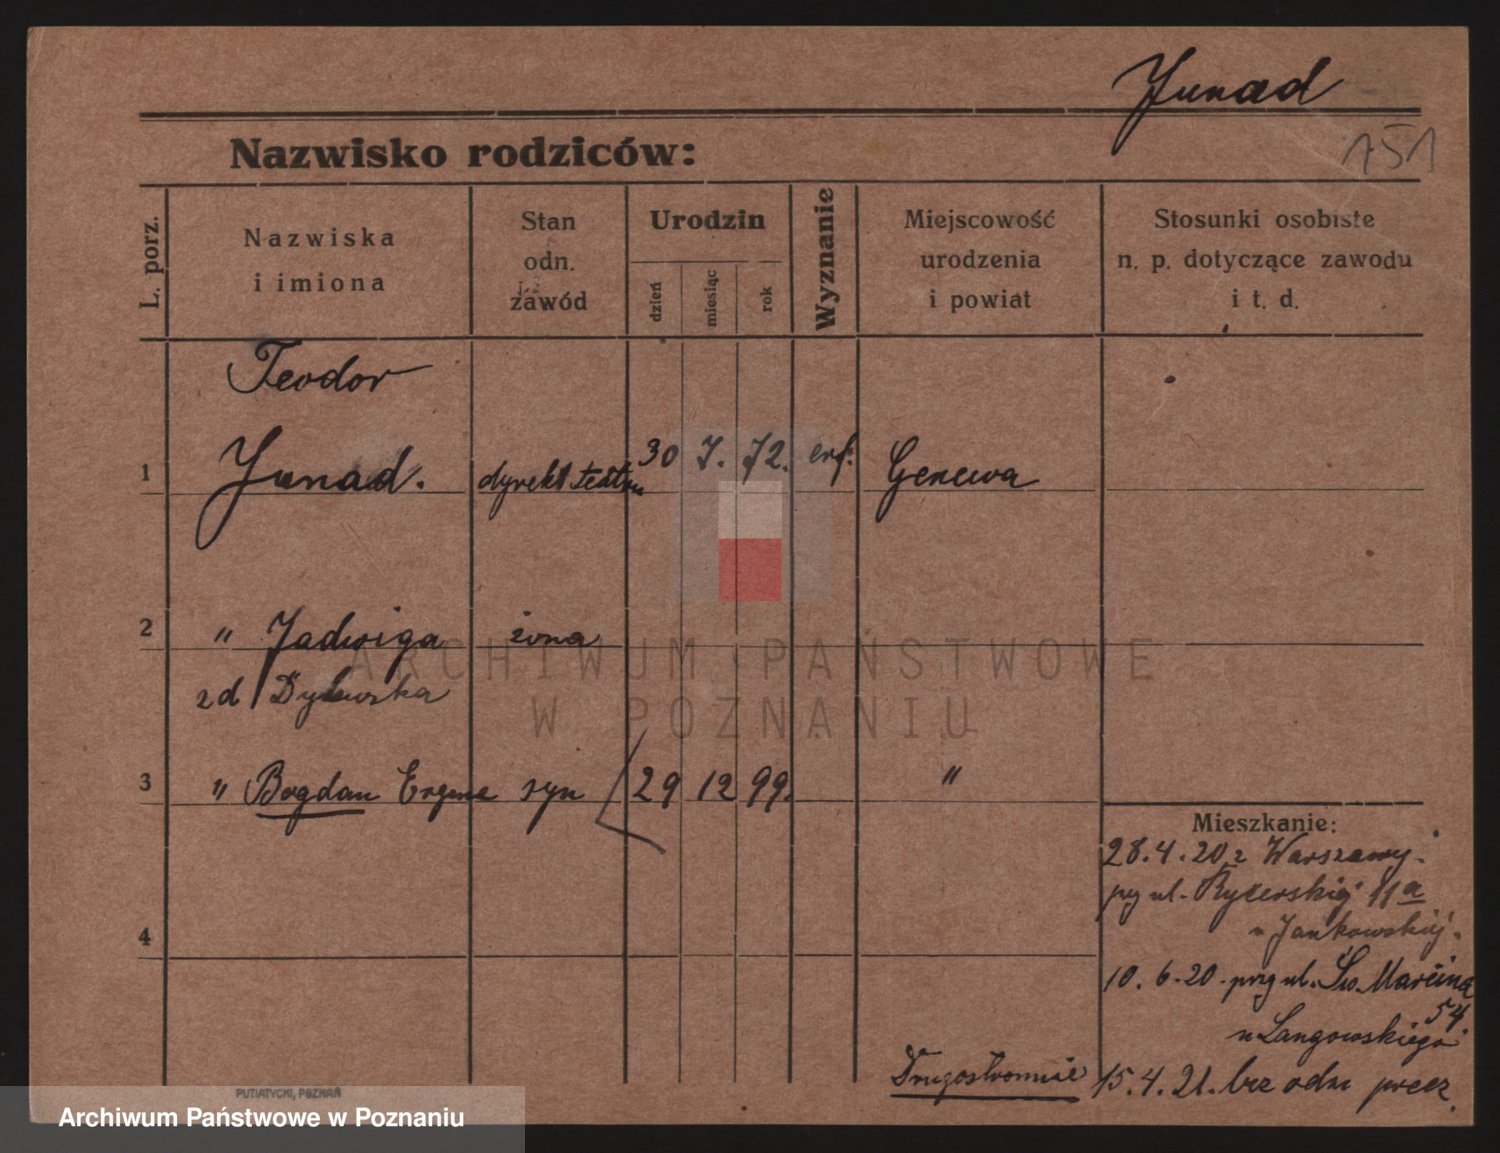 Junad
151
Nazwisko rodziców:
L. porz.
Nazwiska
i imiona
Stan
odn.
zawód
Urodzin
dzień
miesiąc
rok
Wyznanie
Miejscowość
urodzenia
i powiat
Stosunki osobiste
n. p. dotyczące zawodu
i t. d.
Teodor
1 Junad. dyrekt teatru 30 7. 72. Genewa
2 " Jadwiga żona
zd
3 " Bogdan syn 29 12 99. "
4
Mieszkanie:
28.4.20 z Warszawy.
przy ul. 11a
u Jankowskiej.
10.6.20. przy ul. Św. Marcina
54.
u Langowskiego
Drugostronnie 15.4.21. bez odm precz.
PUTIATYCKI, POZNAŃ
ARCHIWUM PAŃSTWOWE
W POZNANIU
Archiwum Państwowe w Poznaniu